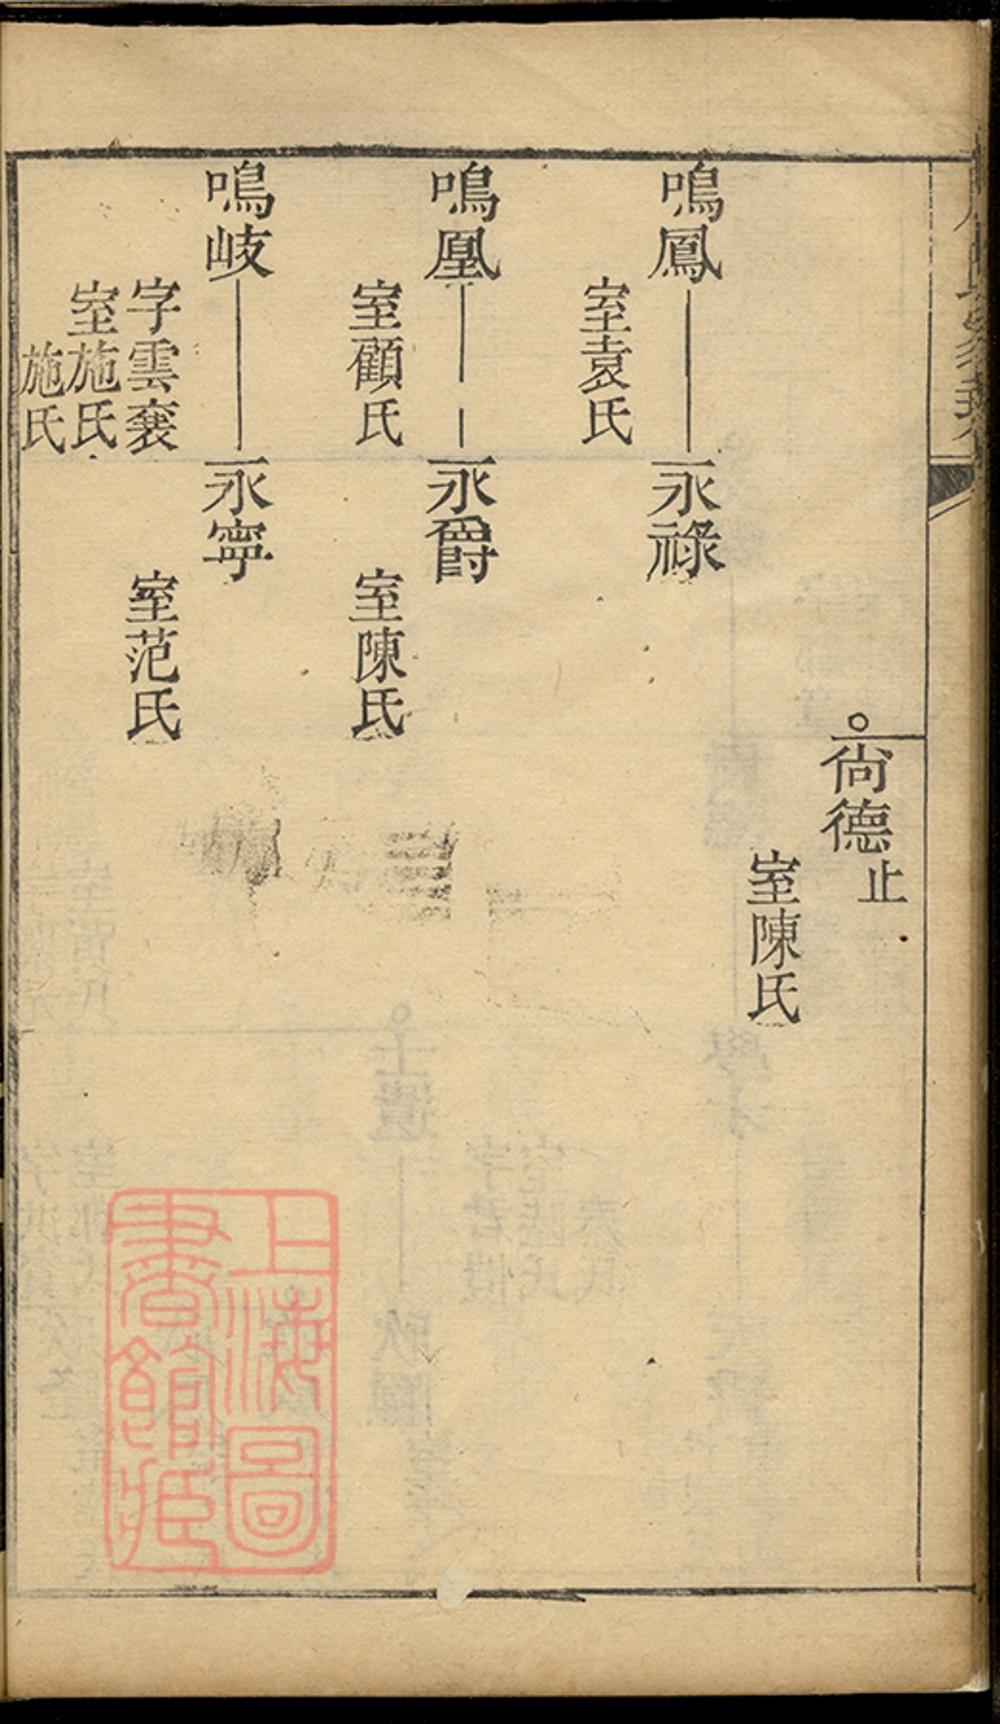 尙德止
室陳氏
鳴鳳
室袁氏
永祿
鳴凰
室顧氏
永爵
室陳氏
鳴岐
字雲襃
室施氏
施氏
永寧
室范氏
上海圖書館藏